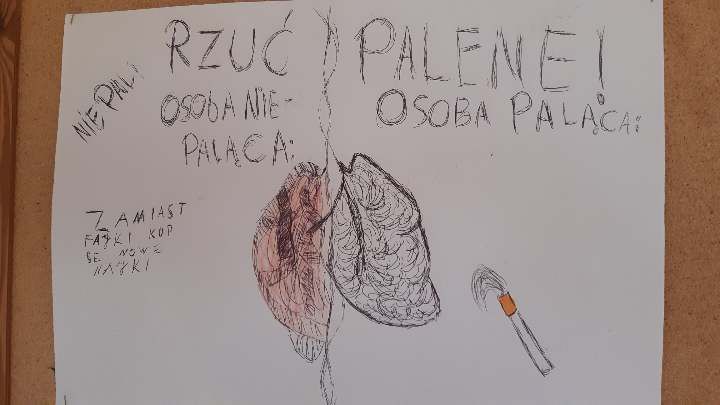 RZUĆ PALENE!
NIE PAL!
OSOBA NIE-
PALĄCA:
OSOBA PALĄCA:
ZAMIAST
FAJKI KUP
SE NOWE
NAJKI